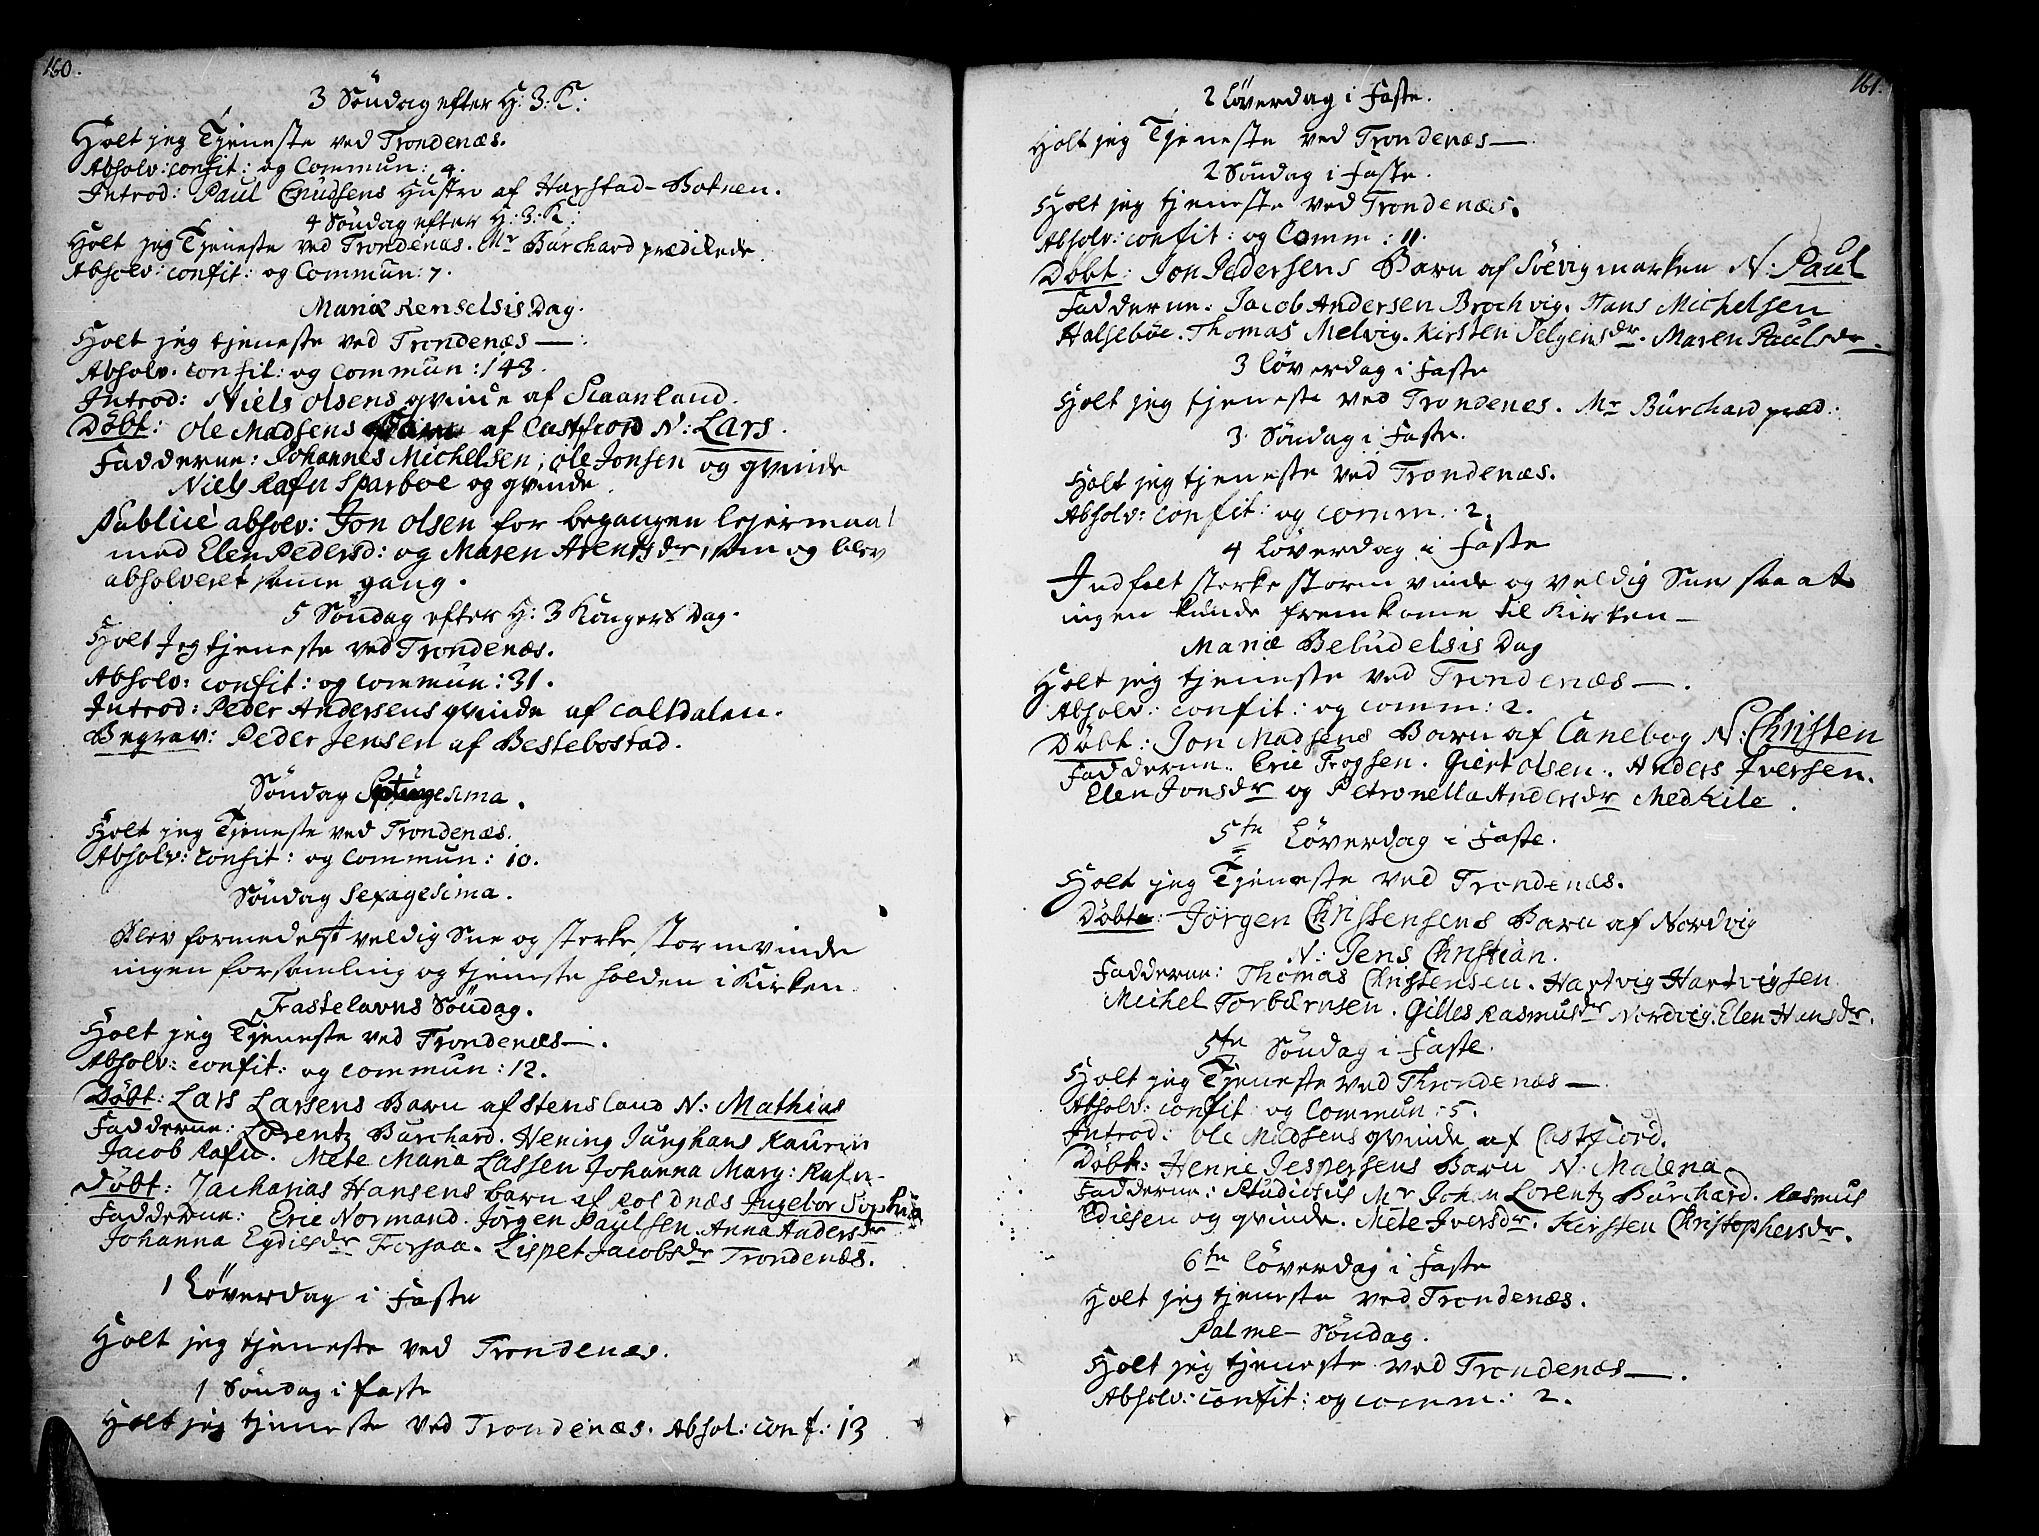 160.
3 Söndag efter H: 3: K:
Holt jeg Tjeneste ved Trondenæs.
Absolv: confit: og Commun: 4.
Introd: Paul Cnudsens Hustro af Harstad-Botnen.
4 Söndag efter H: 3: K:
Holt jeg Tjeneste ved Trondenæs. Mr Burchard prædikede.
Absolv: confit: og Commun: 7.
Mariæ Renselsis Dag.
Holt jeg tjeneste ved Trondenæs —:
Absolv. confit: og commun: 143.
Introd: Niels Olsens qvinde af Scaanland.
Döbt: Ole Madsens Barn af Castfiord N: Lars.
Fadderne: Johannes Michelsen, Ole Jonsen og qvinde
Niels Rafn Sparboe og qvinde.
Publice absolv: Jon Olsen for begangen lejermaal
med Elen Pedersd: og Maren Arentsdr, som og blev
absolveret same gang.
5 Söndag efter H: 3 Kongers Dag.
Holt Jeg tjeneste ved Trondenæs.
Absolv: confit: og commun: 31.
Introd: Peder Andersens qvinde af Caltdalen.
Begrav: Peder Jensen af Bestebostad.
Söndag Septuagesima.
Holt jeg Tjeneste ved Trondenæs.
Absolv: confit: og Commun: 10.
Söndag Sexagesima.
Blev formedelst veldig Sne og sterke stormvinde
ingen forsamling og tjeneste holden i Kirken.
Fastelavns Söndag.
Holt jeg Tjeneste ved Trondenæs—.
Absolv: confit: og commun: 12.
Döbt: Lars Larsens Barn af Stensland N: Mathias
Fadderne: Lorentz Burchard. Hening Junghans Kaurin
Jacob Rafn. Mete Maria Lassen Johanna Marg: Rafn-
Döbt: Zacharias Hansens barn af Roldnæs Ingebor Sophia
Fadderne: Eric Normand. Jörgen Paulsen. Anna Andersdr
Johanna Eydiesdr Trosaa. Lispet Jacobsdr Trondenæs.
1 Löverdag i Faste
Holt jeg tjeneste ved Trondenæs.
1 Söndag i faste
Holt jeg tjeneste ved Trondenæs. Absol: conf: 13
161.
2 Löverdag i Faste.
Holt jeg Tjeneste ved Trondenæs—.
2 Söndag i Faste.
Holt jeg tjeneste ved Trondenæs.
Absolv: confit: og Comm: 11.
Döbt: Jon Pedersens Barn af Söevigmarken N: Paul
Fadderne. Jacob Andersen Brochvig. Hans Michelsen
Halseböe. Thomas Melvig. Kirsten Selgensdr. Maren Paulsdr.
3 Löverdag i Faste
Holt jeg tjeneste ved Trondenes. Mr Burchard præd:
3 Söndag i Faste.
Holt jeg tjeneste ved Trondenæs.
Absolv: confit: og comm. 2.
4 Löverdag i Faste
Indfalt sterke storm vinde og veldig Sne saa at
ingen kunde fremkome til Kirken—
Mariæ Bebudelsis Dag
Holt jeg tjeneste ved Trondenæs—.
Absolv: confit: og comm: 2.
Döbt: Jon Madsens Barn af Canebog N: Christen
Fadderne: Eric Trogsen. Giert Olsen. Anders Iversen.
Elen Jonsdr og Petronella Andersdr Medkile.
5te Löverdag i Faste.
Holt jeg Tjeneste ved Trondenæs.
Döbte: Jörgen Christensens Barn af Nordvig
N: Jens Christian.
Fadderne: Thomas Christensen. Hartvig Hartvigsen.
Michel Torbærnsen. Gilles Rasmusdr Nordvig. Elen Hansdr.
5te Söndag i Faste.
Holt jeg Tjeneste ved Throndenæs—
Absolv: confit: og Commun: 5.
Introd: Ole Madsens qvinde af Castfiord.
Döbt: Henric Jespersens Barn N: Malena
Fadderne: Studiosus Mr Johan Lorentz Burchard. Rasmus
Ediesen og qvinde. Mete Iversdr. Kirsten Christophersdr.
6te Löverdag i Faste
Holt jeg tjeneste ved Trondenæs.
Palme-Söndag.
Holt jeg tjeneste ved Trondenæs—.
Absolv: confit: og comm: 2.